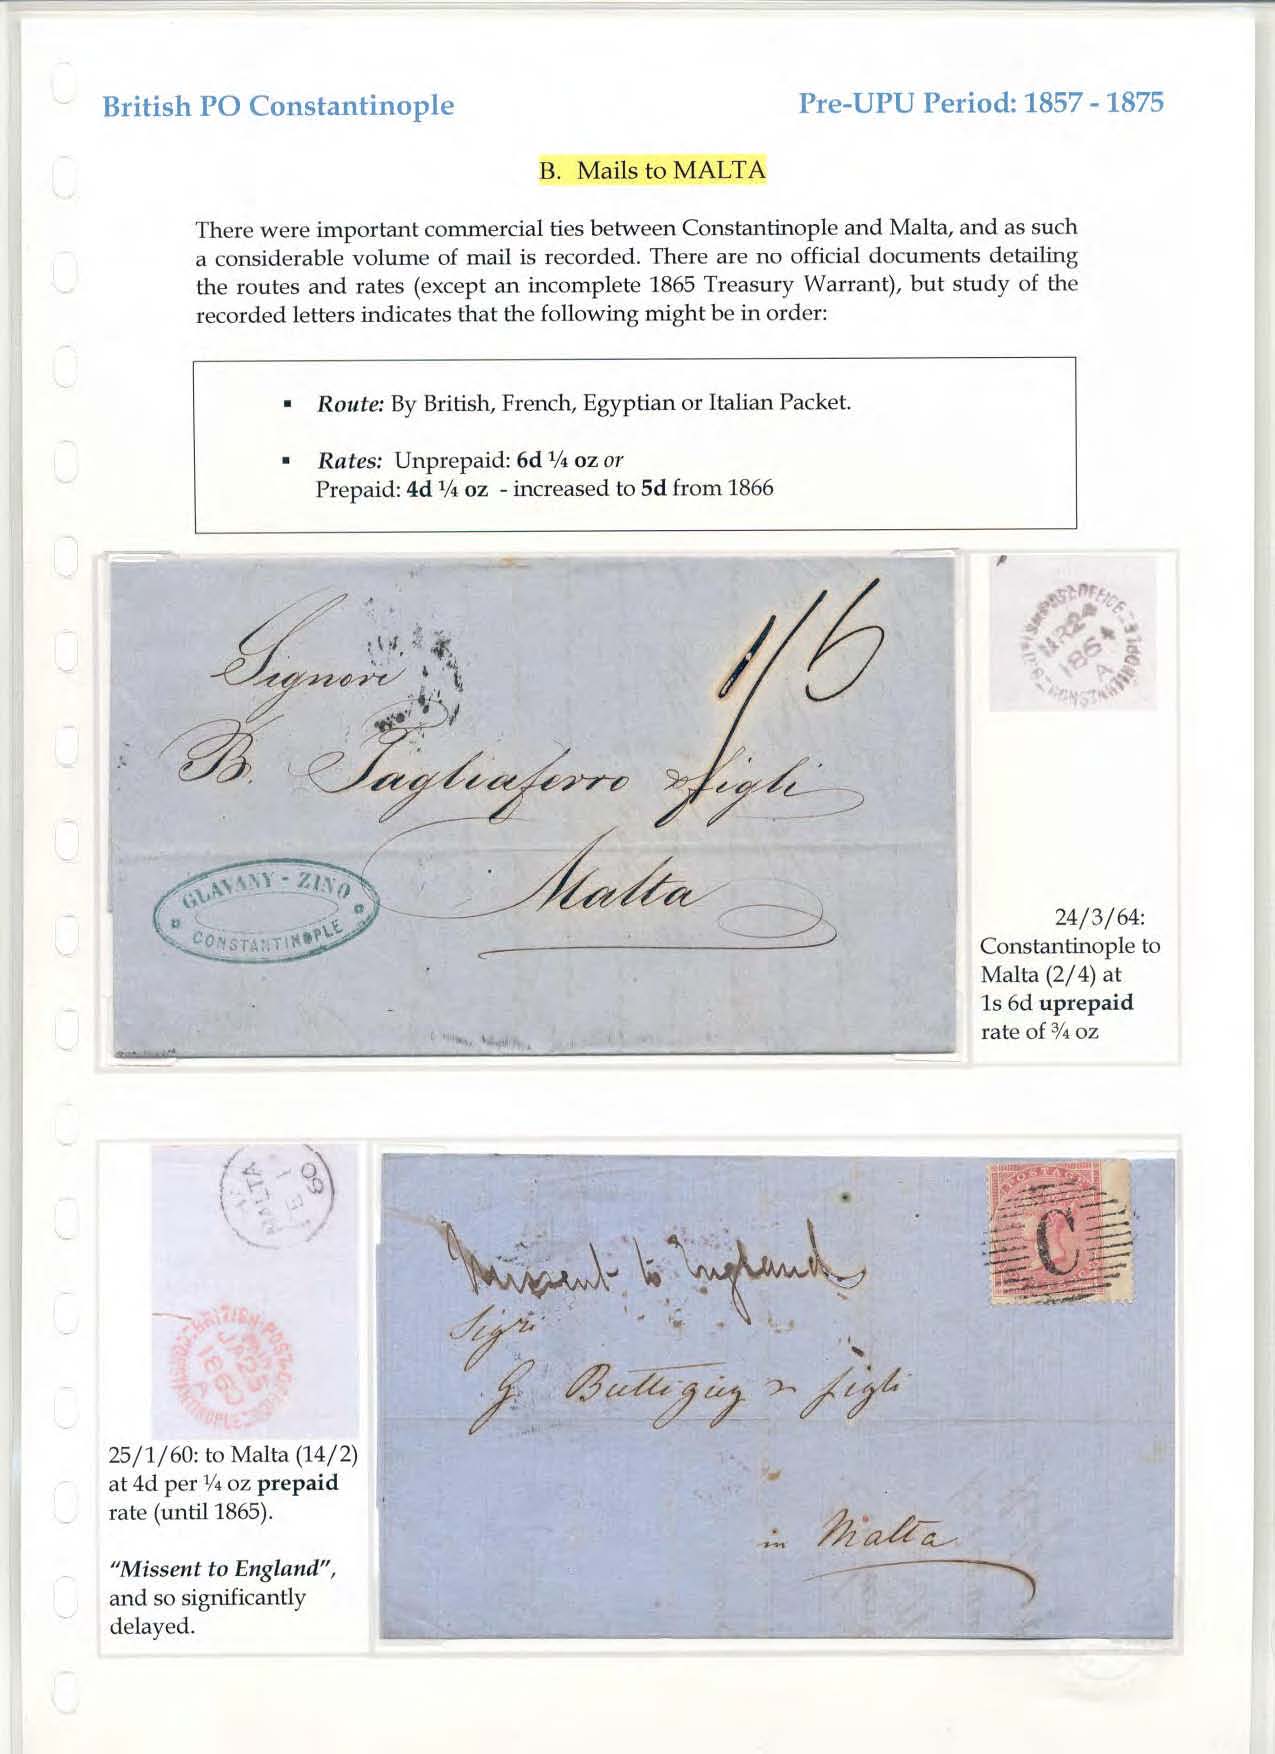 British PO Constantinople
Pre-UPU Period: 1857 - 1875
B. Mails to MALTA
There were important commercial ties between Constantinople and Malta, and as such
a considerable volume of mail is recorded. There are no official documents detailing
the routes and rates (except an incomplete 1865 Treasury Warrant), but study of the
recorded letters indicates that the following might be in order:
▪ Route: By British, French, Egyptian or Italian Packet.
▪ Rates: Unprepaid: 6d ¼ oz or
Prepaid: 4d ¼ oz - increased to 5d from 1866
1/6
Signori
B. Tagliaferro & figli
Malta
GLAVANY - ZINO
CONSTANTINOPLE
POST OFFICE
MR 24
1864
A
24/3/64:
Constantinople to
Malta (2/4) at
1s 6d uprepaid
rate of ¾ oz
MALTA
60
BRITISH POST
JA 25
1860
A
25/1/60: to Malta (14/2)
at 4d per ¼ oz prepaid
rate (until 1865).
"Missent to England",
and so significantly
delayed.
POSTAGE
C
Missent to England
Sigri
G. Buttigieg & figli
in Malta